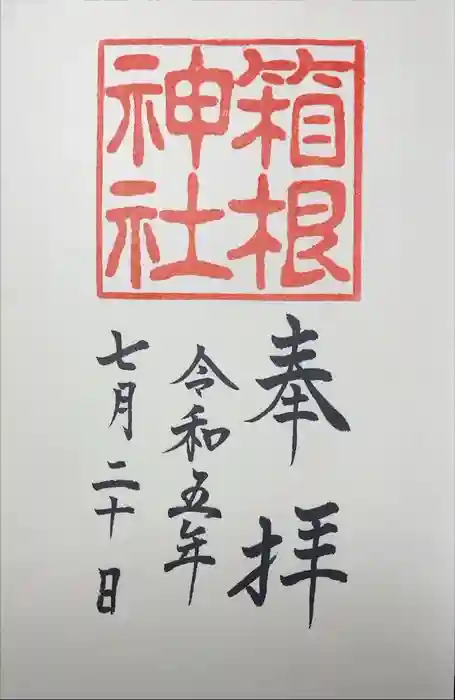 箱根
神社
奉拝
令和五年
七月二十日